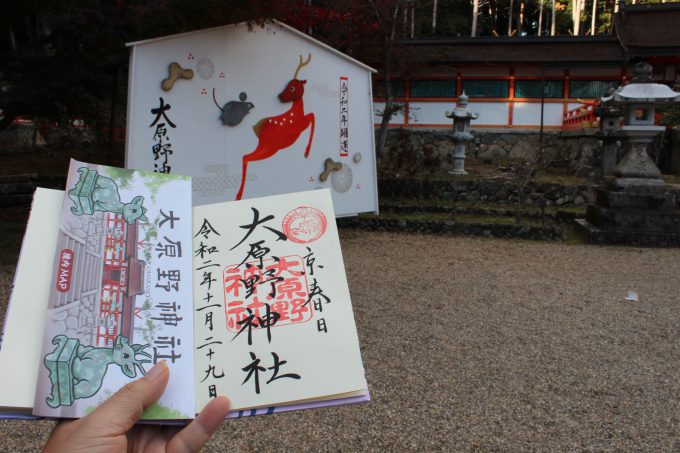 大原野神
令和二年開運
大原野神社
境内MAP
京春日
大原野神社
大原野
神社
令和二年十一月二十九日